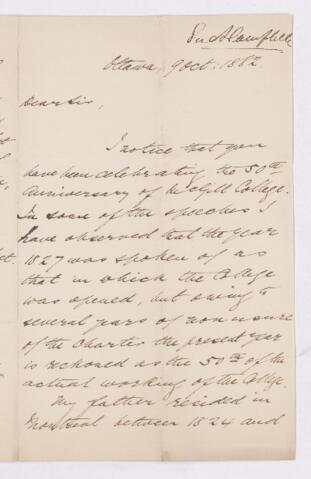 Sir A Campbell
Ottawa, 9 Oct. 1882.
Dear Sir,
I notice that you
have been celebrating the 50th
Anniversary of McGill College.
In some of the speeches I
have observed that the year
1827 was spoken of as
that in which the College
was opened, but owing to
several years of non usure
of the Charter the present year
is reckoned as the 50th of the
actual working of the College.
My father resided in
Montreal between 1824 and